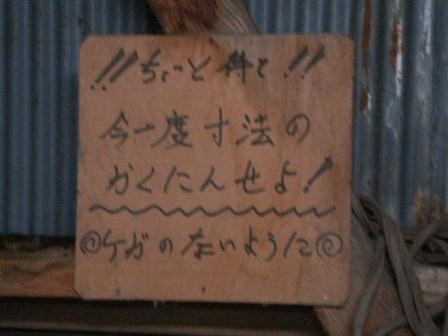 !!ちょーと待て!!
今一度寸法の
かくにんせよ!
◎ケガのないように◎